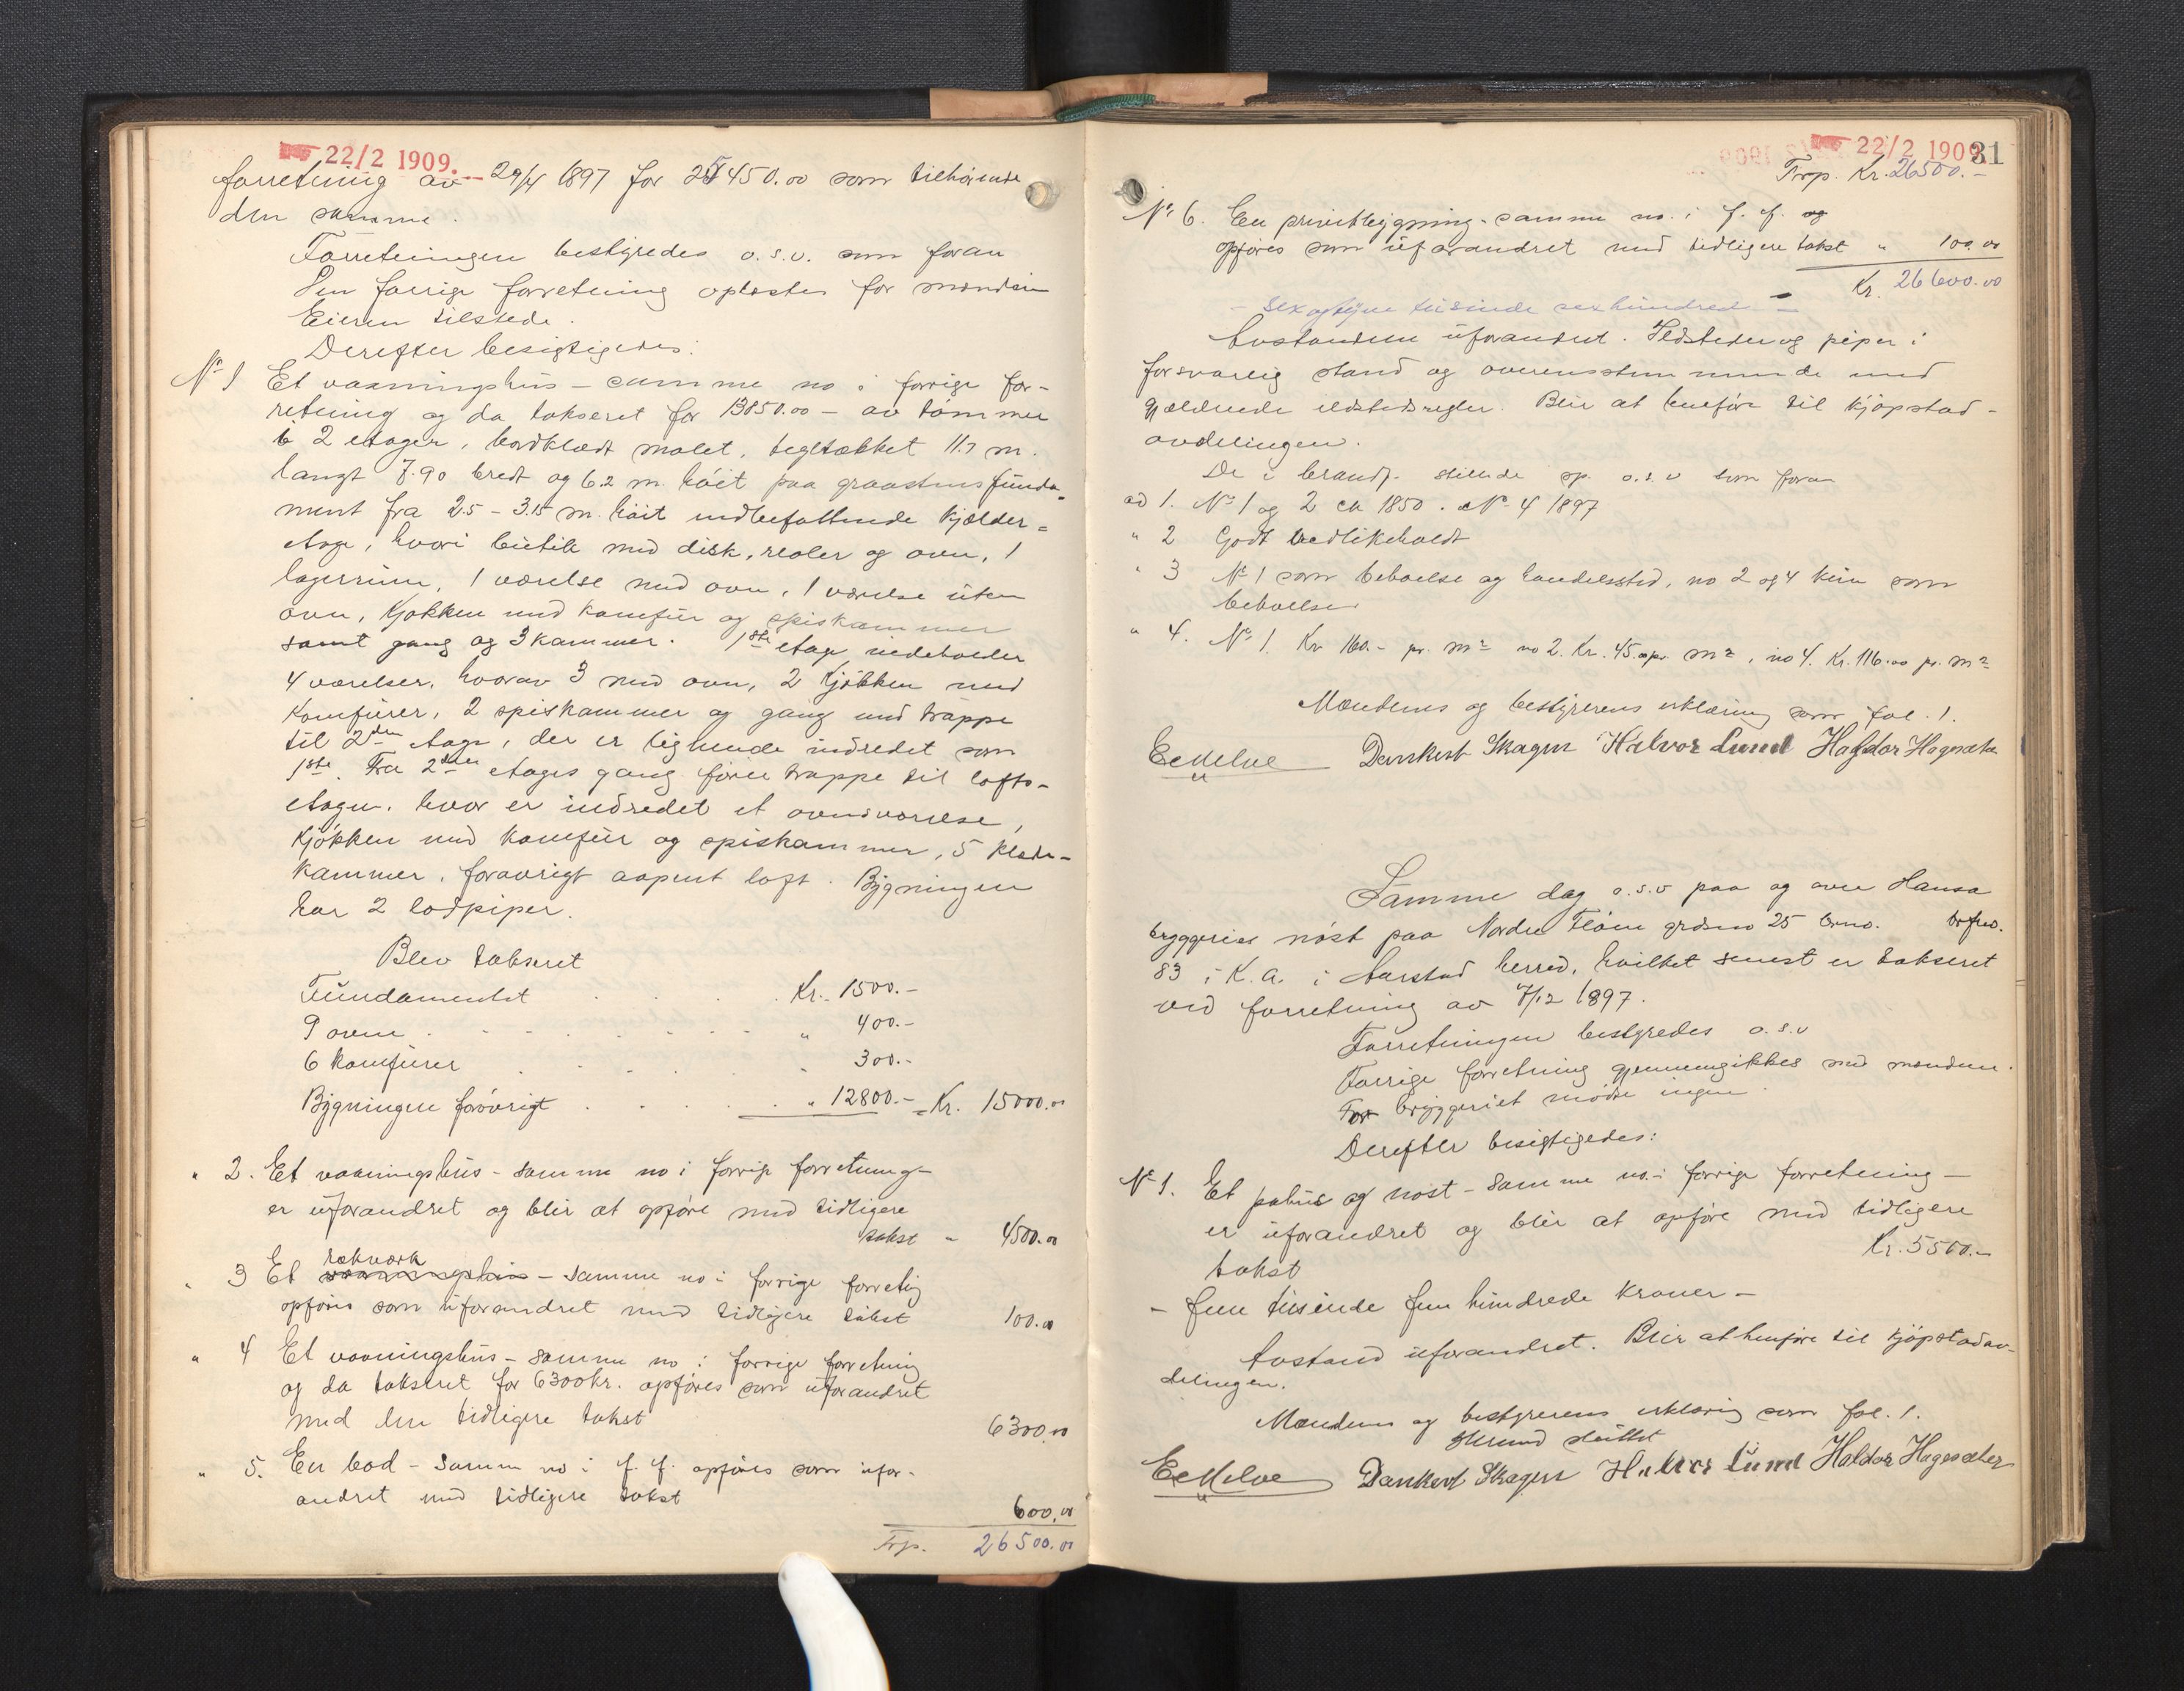 22/2 1909.
forretning av 29/4 1897 for 25450.00 som tilhørende
den samme.
Forretningen bestyredes o.s.v. som foran
Den forrige forretning oplæstes for mændene
Eieren tilstede.
Derefter besigtigedes:
No 1 Et vaaningshus – samme no i forrige for-
retning og da takseret for 13850.00 – av tømmer
i 2 etager, bordklædt malet, tegltækket 11.7 m.
langt 7.90 bredt og 6.2 m. høit paa graastensfunda-
ment fra 2.5 – 3.15 m. høit indbefattende kjælder-
etage, hvori butik med disk, reoler og ovn, 1
lagerrum, 1 værelse med ovn, 1 værelse uten
ovn, kjøkken med komfur og spiskammer
samt gang og 3 kammer. 1ste etage indeholder
4 værelser, hvorav 3 med ovn, 2 kjøkken med
komfurer, 2 spiskammer og gang med trappe
til 2den etage, der er lignende indredet som
1ste. Fra 2den etages gang fører trappe til lofts-
etagen, hvor er indredet et ovnsværelse,
kjøkken med komfur og spiskammer, 5 klæde-
kammer, forøvrigt aapent loft. Bygningen
har 2 lodpiper.
Blev takseret
Fundamentet . . . Kr. 1500.–
9 ovne . . . " 400.–
6 komfurer . . . " 300.–
Bygningen forøvrigt . . . " 12800.– = Kr. 15000.00
" 2. Et vaaningshus – samme no i forrige forretning –
er uforandret og blir at opføre med tidligere
takst " 4500.00
" 3 Et rækværk vaaningshus – samme no i forrige forretng
opføres som uforandret med tidligere takst 100.00
" 4 Et vaaningshus – samme no i forrige forretning
og da takseret for 6300 kr. opføres som uforandret
med den tidligere takst 6300.00
" 5. En bod – samme no i f. f. opføres som ufor-
andret med tidligere takst
600.00
Trp. 26500.00
22/2 1909.
31
Trp. Kr. 26500.–
No 6. En privetbygning – samme no. i f. f. og
opføres som uforandret med tidligere takst " 100.00
Kr. 26600.00
– Sexogtyve tusinde sexhundred –
Avstandene uforandret. Ildsteder og piper i
forsvarlig stand og overensstemmende med
gjældende ildstedsregler. Blir at henføre til kjøpstad-
avdelingen.
De i brandf. stillede sp. o.s.v som foran
ad 1. No 1 og 2 ca 1850. No 4 1897
" 2 Godt vedlikeholdt
" 3 No 1 som beboelse og handelssted, no 2 og 4 kun som
beboelse
" 4. No 1. Kr 160.– pr. m2 no 2. Kr. 45.00 pr. m2, no 4. Kr. 116.00 pr. m2
Mændenes og bestyrerens erklæring som fol. 1.
Dankert Skagen Halvor Lund Haldor Hagesæter
Samme dag o.s.v paa og over Hansa
bryggeries nøst paa Nordre Fløen grdsno 25 brno. brfno.
83 i K.A. i Aarstad herred, hvilket senest er takseret
ved forretning av 7/12 1897.
Forretningen bestyredes o.s.v
Forrige forretning gjennemgikkes med mændene.
For bryggeriet mødte ingen
Derefter besigtigedes:
No 1. Et pakhus og nøst – samme no. i forrige forretning –
er uforandret og blir at opføre med tidligere
takst Kr. 5500.–
– fem tusinde fem hundrede kroner –
Avstand uforandret. Blir at henføre til kjøpstadav-
delingen.
Mændenes og bestyrerens erklæring som fol. 1.
Dankert Skagen Halvor Lund Haldor Hagesæter